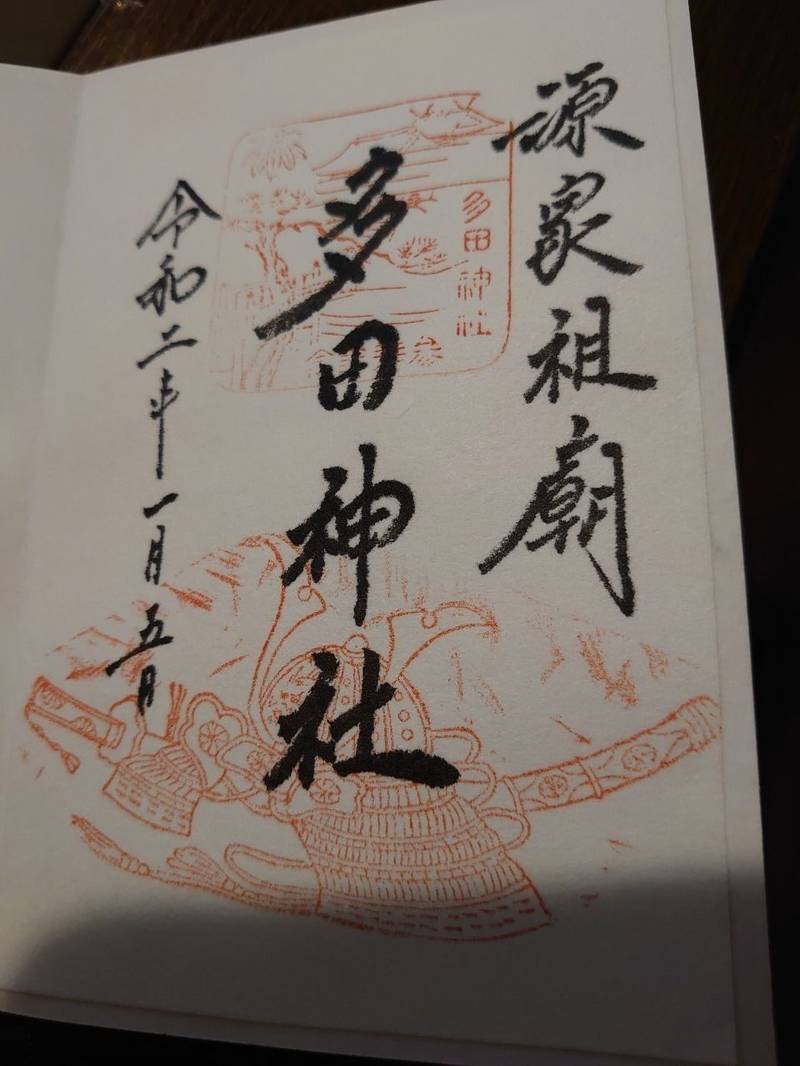 源家祖廟
多田神社
多田神社
令和二年一月五日